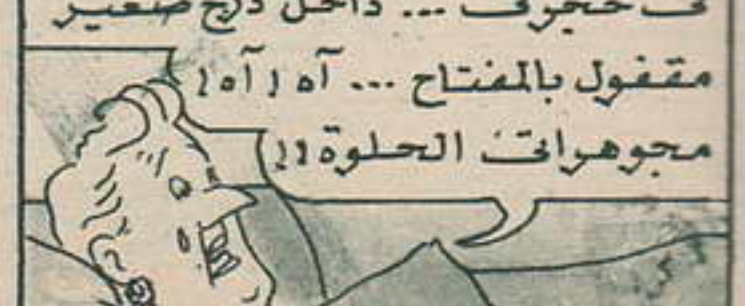 فى حجرتى ... داخل درج صغير
مقفول بالمفتاح ... آه ! آه !
مجوهراتى الحلوة !!